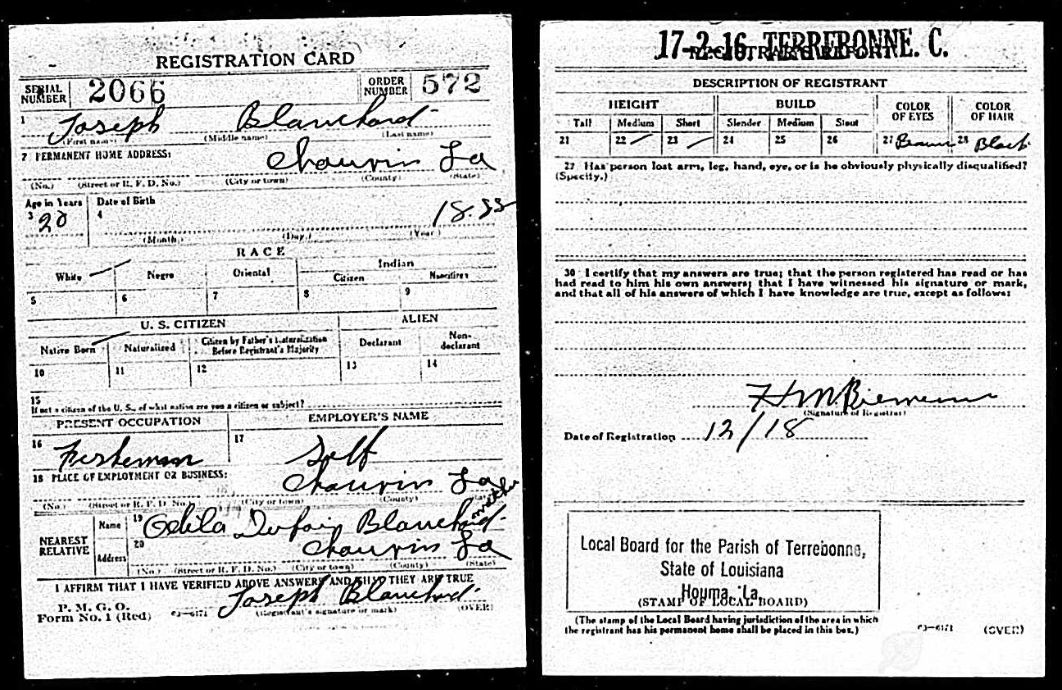 REGISTRATION CARD
SERIAL NUMBER 2066 ORDER NUMBER 572
1 Joseph Blanchard
(First name) (Middle name) (Last name)
2 PERMANENT HOME ADDRESS:
Chauvin La
(No.) (Street or R. F. D. No.) (City or town) (County) (State)
Age in Years Date of Birth
3 20 4 18
(Month) (Day) (Year)
RACE
White Negro Oriental Indian
Citizen Noncitizen
5 6 7 8 9
U. S. CITIZEN ALIEN
Native Born Naturalized Citizen by Father's Naturalization Before Registrant's Majority Declarant Non-declarant
10 11 12 13 14
15
If not a citizen of the U. S., of what nation are you a citizen or subject?
PRESENT OCCUPATION EMPLOYER'S NAME
16 17 Self
18 PLACE OF EMPLOYMENT OR BUSINESS:
Chauvin La
(No.) (Street or R. F. D. No.) (City or town) (County) (State)
NEAREST RELATIVE Name 19 Blanchard mother
Address 20 Chauvin La
(No.) (Street or R. F. D. No.) (City or town) (County) (State)
I AFFIRM THAT I HAVE VERIFIED ABOVE ANSWERS AND THAT THEY ARE TRUE
P. M. G. O.
Form No. 1 (Red) 03—6171 Joseph Blanchard
(Registrant's signature or mark) (OVER)
17-2-16 TERREBONNE. C.
REGISTRAR'S REPORT
DESCRIPTION OF REGISTRANT
HEIGHT BUILD COLOR OF EYES COLOR OF HAIR
Tall Medium Short Slender Medium Stout
21 22 23 24 25 26 27 Brown 28 Black
29 Has person lost arm, leg, hand, eye, or is he obviously physically disqualified?
(Specify.)
30 I certify that my answers are true; that the person registered has read or has
had read to him his own answers; that I have witnessed his signature or mark,
and that all of his answers of which I have knowledge are true, except as follows:
(Signature of Registrar)
Date of Registration 12/18
Local Board for the Parish of Terrebonne,
State of Louisiana
Houma, La.
(STAMP OF LOCAL BOARD)
(The stamp of the Local Board having jurisdiction of the area in which
the registrant has his permanent home shall be placed in this box.)
03—6171 (OVER)